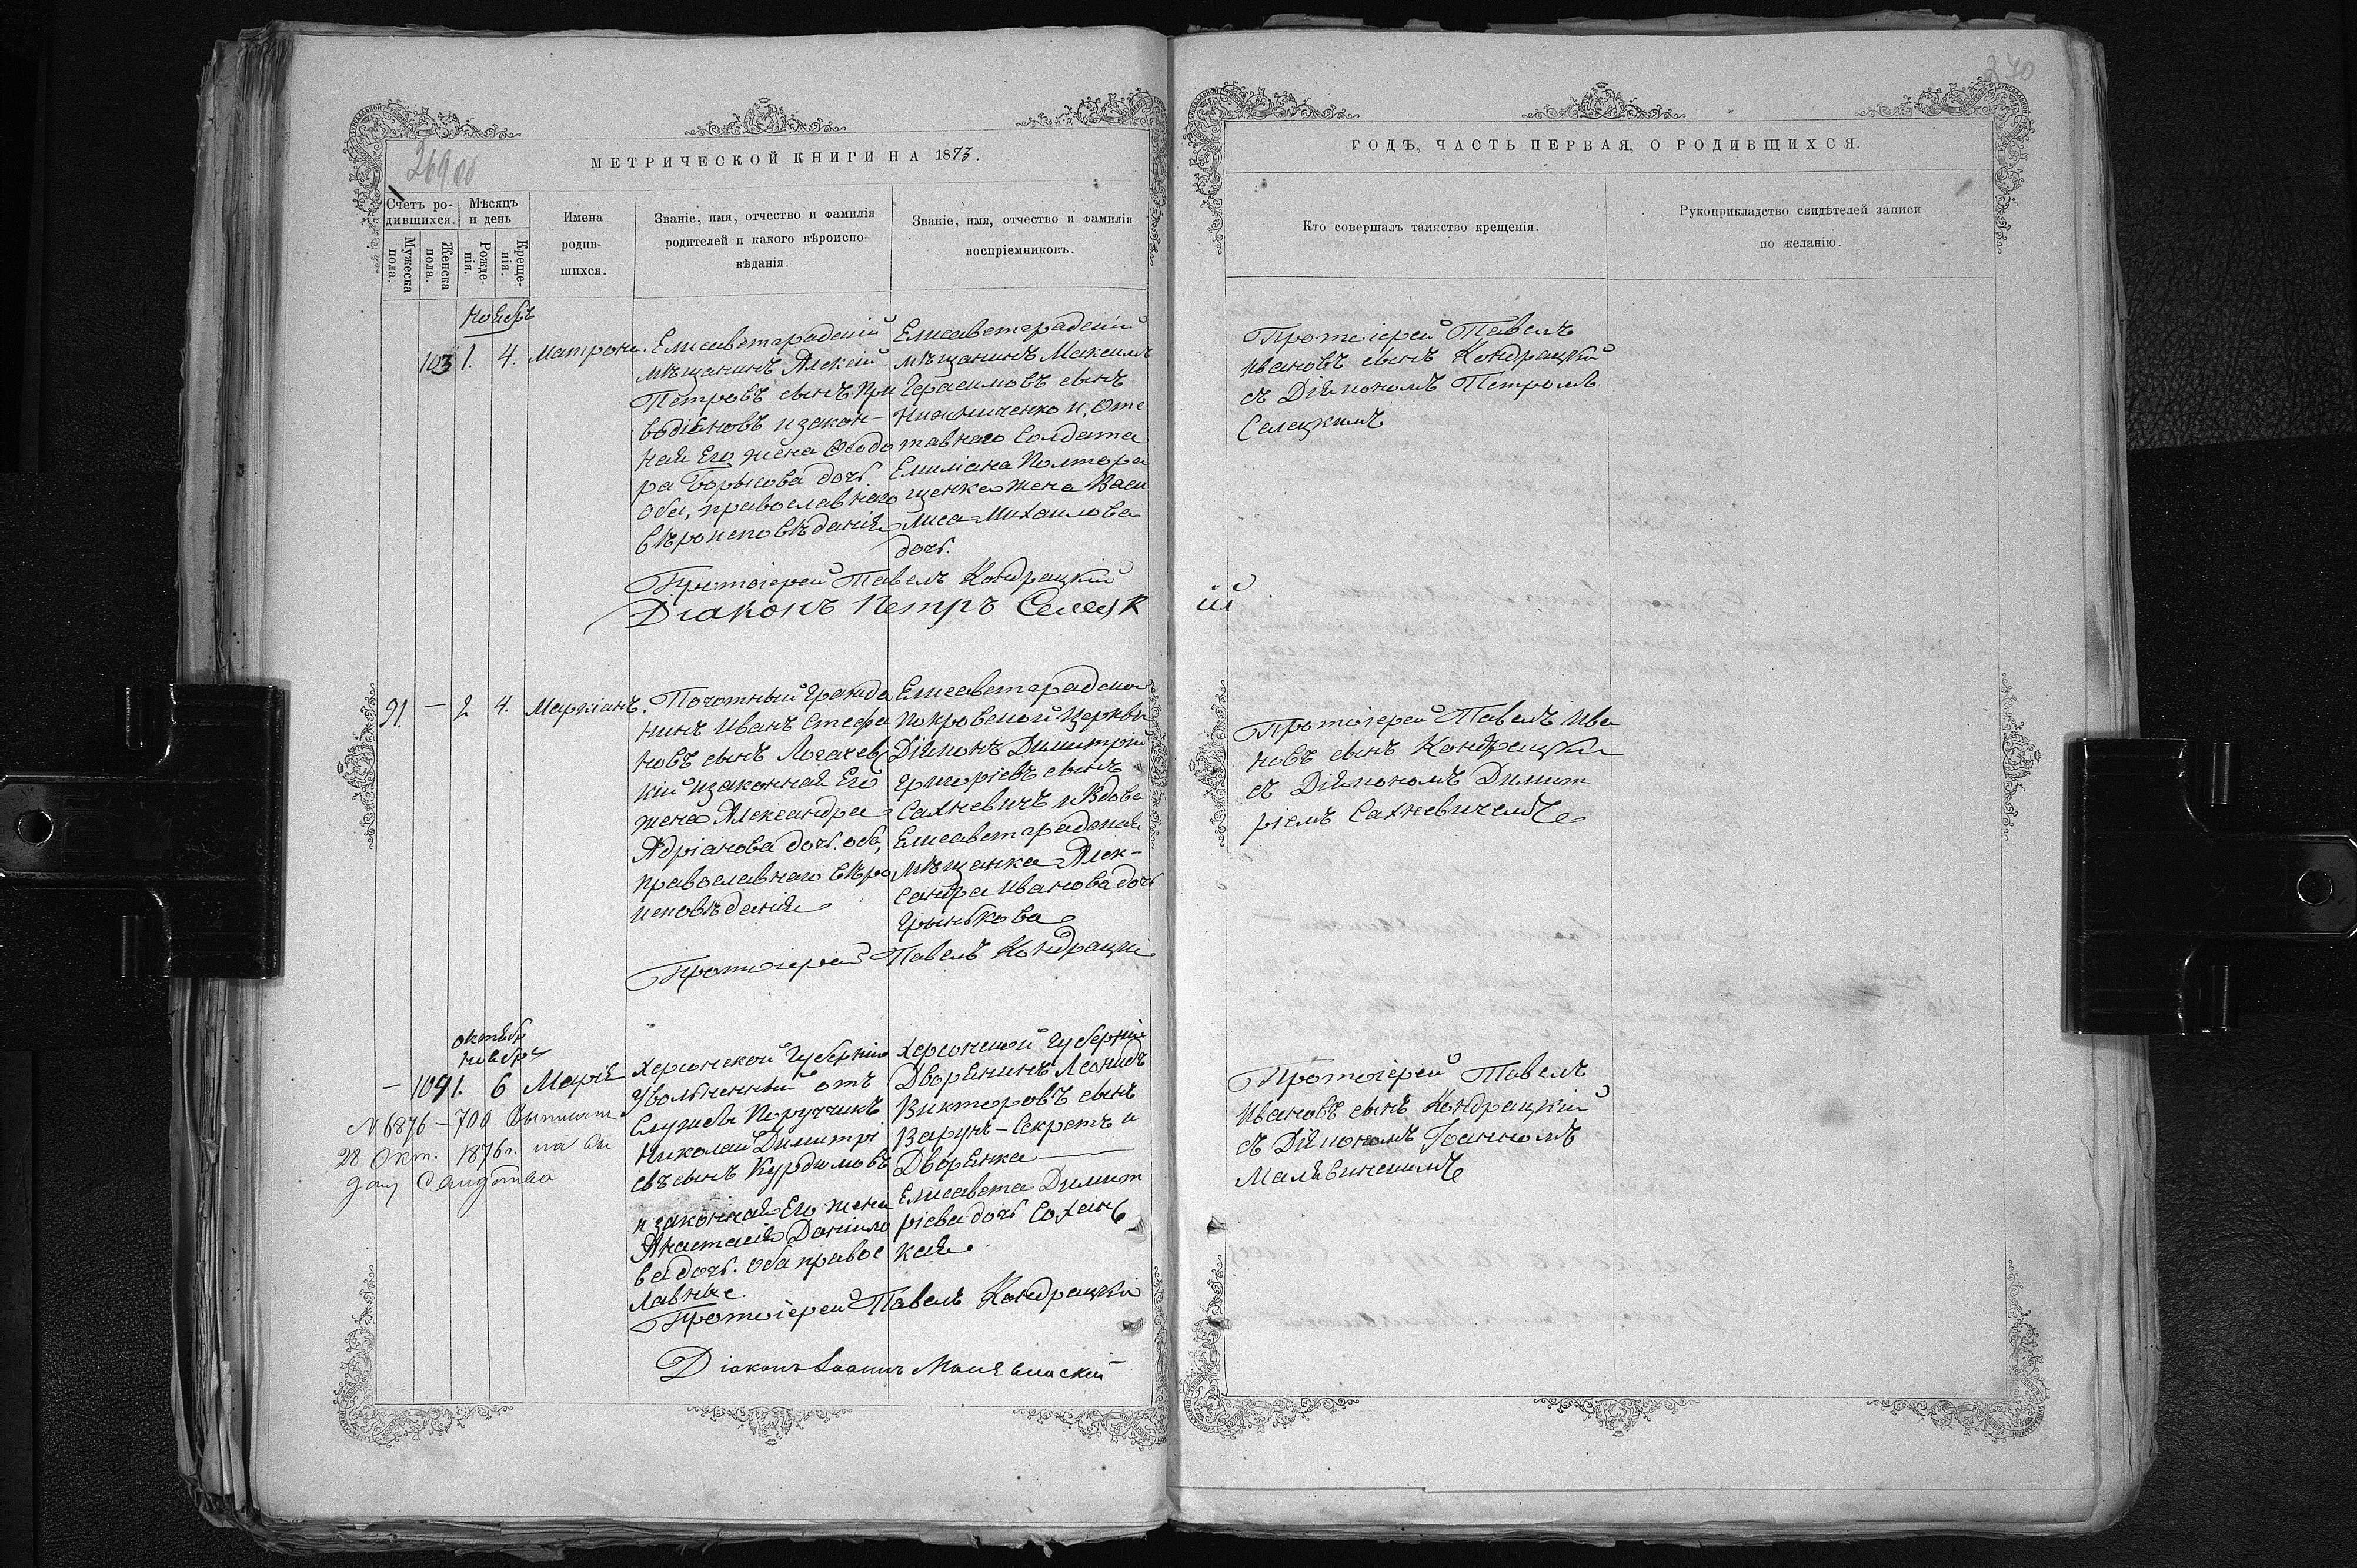 269 об
270
МЕТРИЧЕСКОЙ КНИГИ НА 1873.
ГОДЪ, ЧАСТЬ ПЕРВАЯ, О РОДИВШИХСЯ.
Счетъ ро-
дившихся.
Мужеска
пола.
Женска
пола.
Мѣсяцъ
и день
Рожде-
нія.
Креще-
нія.
Имена
родив-
шихся.
Званіе, имя, отчество и фамилія
родителей и какого вѣроиспо-
вѣданія.
Званіе, имя, отчество и фамилія
воспріемниковъ.
Кто совершалъ таинство крещенія.
Рукоприкладство свидѣтелей записи
по желанію.
Ноябрь
103 1. 4. Матрона.
Елисаветградскій
мѣщанинъ Алексій
Петровъ сынъ При
водіановъ и закон-
ная Его жена Ѳеодо
ра Борысова дочь.
Оба, православнаго
вѣроисповѣданія
Елисаветградскій
мѣщанинъ Максимъ
Герасимовъ сынъ
и, Отс
тавнаго Солдата
Емиліана Полтора
щенка жена Васи
лиса Михаилова
дочь.
Протоіерей Павелъ
Ивановъ сынъ Кондрацкій
съ Діякономъ Петромъ
Селецкимъ
Протоіерей Павелъ Кондрацкій
Діаконъ Петръ Селецкій
91. — 2 4. Маркіанъ.
Почотный Гражда
нинъ Иванъ Стефа
новъ сынъ Логачевс
кій и законная Его
жена Александра
Адріанова дочь. оба,
православнаго вѣро
исповѣданія
Елисаветградской
Покровской Церкви
Діяконъ Димитрій
Григоріевъ сынъ
Сахневичъ и Вдова
Елисаветградская
мѣщанка Алек-
сандра Иванова дочь
Грынькова
Протоіерей Павелъ Ива
новъ сынъ Кондрацкій
съ Діякономъ Димит
ріемъ Сахневичемъ
Протоіерей Павелъ Кондрацкій
октябр
ноябрь
— 104 1. 6 Марія
N 6876 — 700
28 Окт. 1876 г.
Херсонской Губерніи
Уволненный отъ
Службы Поручикъ
Николай Димитрі
евъ сынъ Курдюмовъ
и законная Его жена
Анастасія Даніило
ва дочь. оба правос
лавные.
Херсонской Губерніи
Дворянинъ Леонидъ
Викторовъ сынъ
Варунъ-Секретъ и
Дворянка
Елисавета Димит
ріева дочь Соханс
кая.
Протоіерей Павелъ
Ивановъ сынъ Кондрацкій
съ Діякономъ Іоанномъ
Малявинскимъ
Протоіерей Павелъ Кондрацкій
Діаконъ Іоаннъ Малявинскій